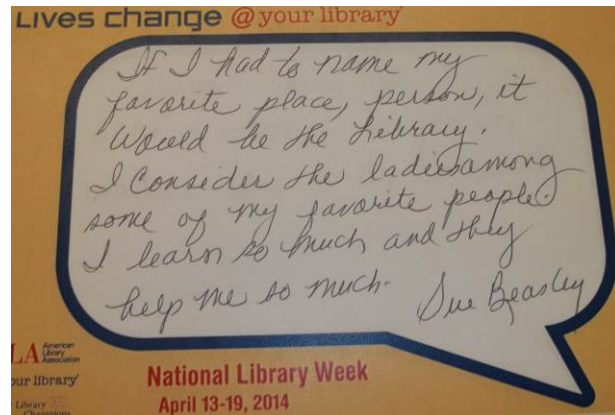 Lives change @ your library
If I had to name my
favorite place, person, it
would be the Library.
I Consider the ladies among
some of my favorite people.
I learn so much and they
help me so much.
Sue Beasley
LA American
Library
Association
our library
Library
Champions
National Library Week
April 13-19, 2014